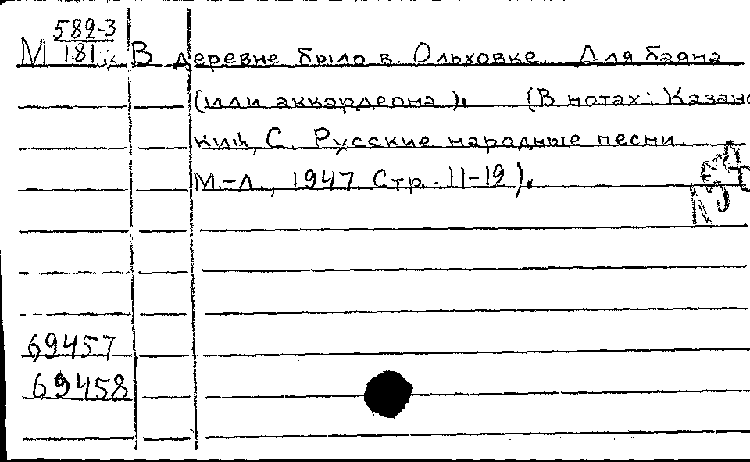 М 589-3
181
В деревне было в Ольховке Для баяна
(или аккордеона). (В нотах: Казанс
кий, С. Русские народные песни.
М.-Л., 1947 Стр. 11-19).
69457
69458